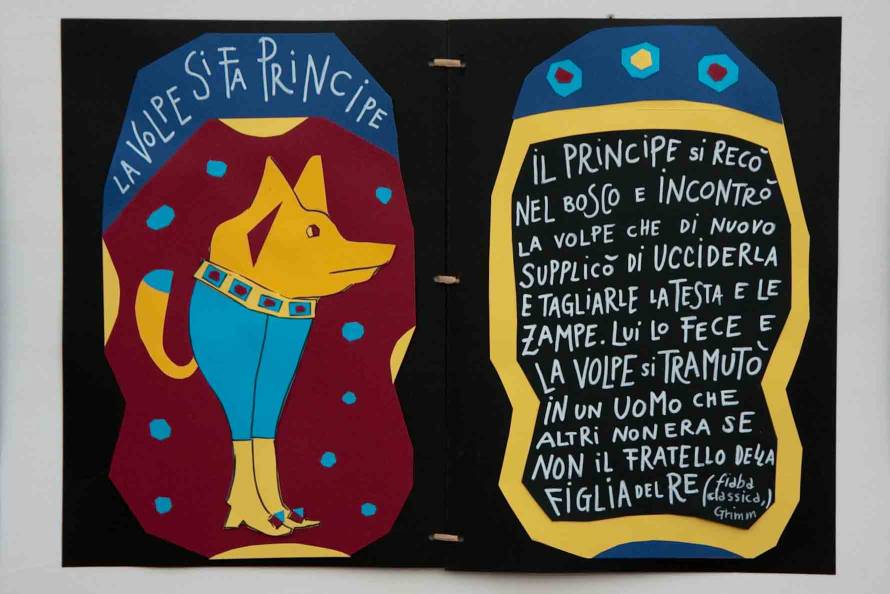 LA VOLPE SI FA PRINCIPE
IL PRINCIPE SI RECÒ
NEL BOSCO E INCONTRÒ
LA VOLPE CHE DI NUOVO
SUPPLICÒ DI UCCIDERLA
E TAGLIARLE LA TESTA E LE
ZAMPE. LUI LO FECE E
LA VOLPE SI TRAMUTÒ
IN UN UOMO CHE
ALTRI NON ERA SE
NON IL FRATELLO DELLA
FIGLIA DEL RE (fiaba
classica,)
Grimm